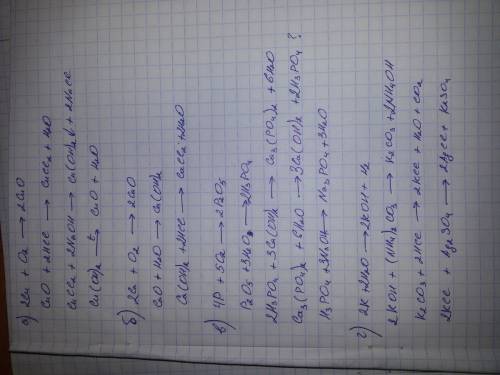 а) 2Cu + O2 → 2CuO
CuO + 2HCl → CuCl2 + H2O
CuCl2 + 2NaOH → Cu(OH)2↓ + 2NaCl
Cu(OH)2 t→ CuO + H2O
б) 2Ca + O2 → 2CaO
CaO + H2O → Ca(OH)2
Ca(OH)2 + 2HCl → CaCl2 + 2H2O
в) 4P + 5O2 → 2P2O5
P2O5 + 3H2O → 2H3PO4
2H3PO4 + 3Ca(OH)2 → Ca3(PO4)2 + 6H2O
Ca3(PO4)2 + 6H2O → 3Ca(OH)2 + 2H3PO4 ?
H3PO4 + 3NaOH → Na3PO4 + 3H2O
г) 2K + 2H2O → 2KOH + H2
2KOH + (NH4)2CO3 → K2CO3 + 2NH4OH
K2CO3 + 2HCl → 2KCl + H2O + CO2
2KCl + Ag2SO4 → 2AgCl + K2SO4